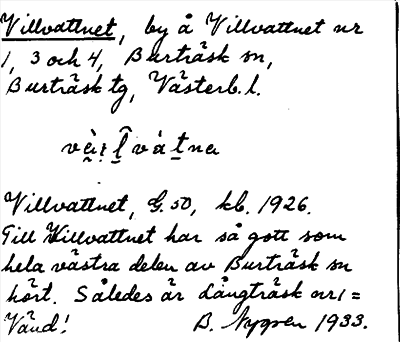 Villvattnet, by å Villvattnet nr
1, 3 och 4, Burträsk sn,
Burträsk tg, Västerb. l.
Villvattnet, G. 50, kb. 1926.
Till Willvattnet har så gott som
hela västra delen av Burträsk sn
hört. Således är Långträsk nr 1 =
Vänd! B. Nygren 1933.